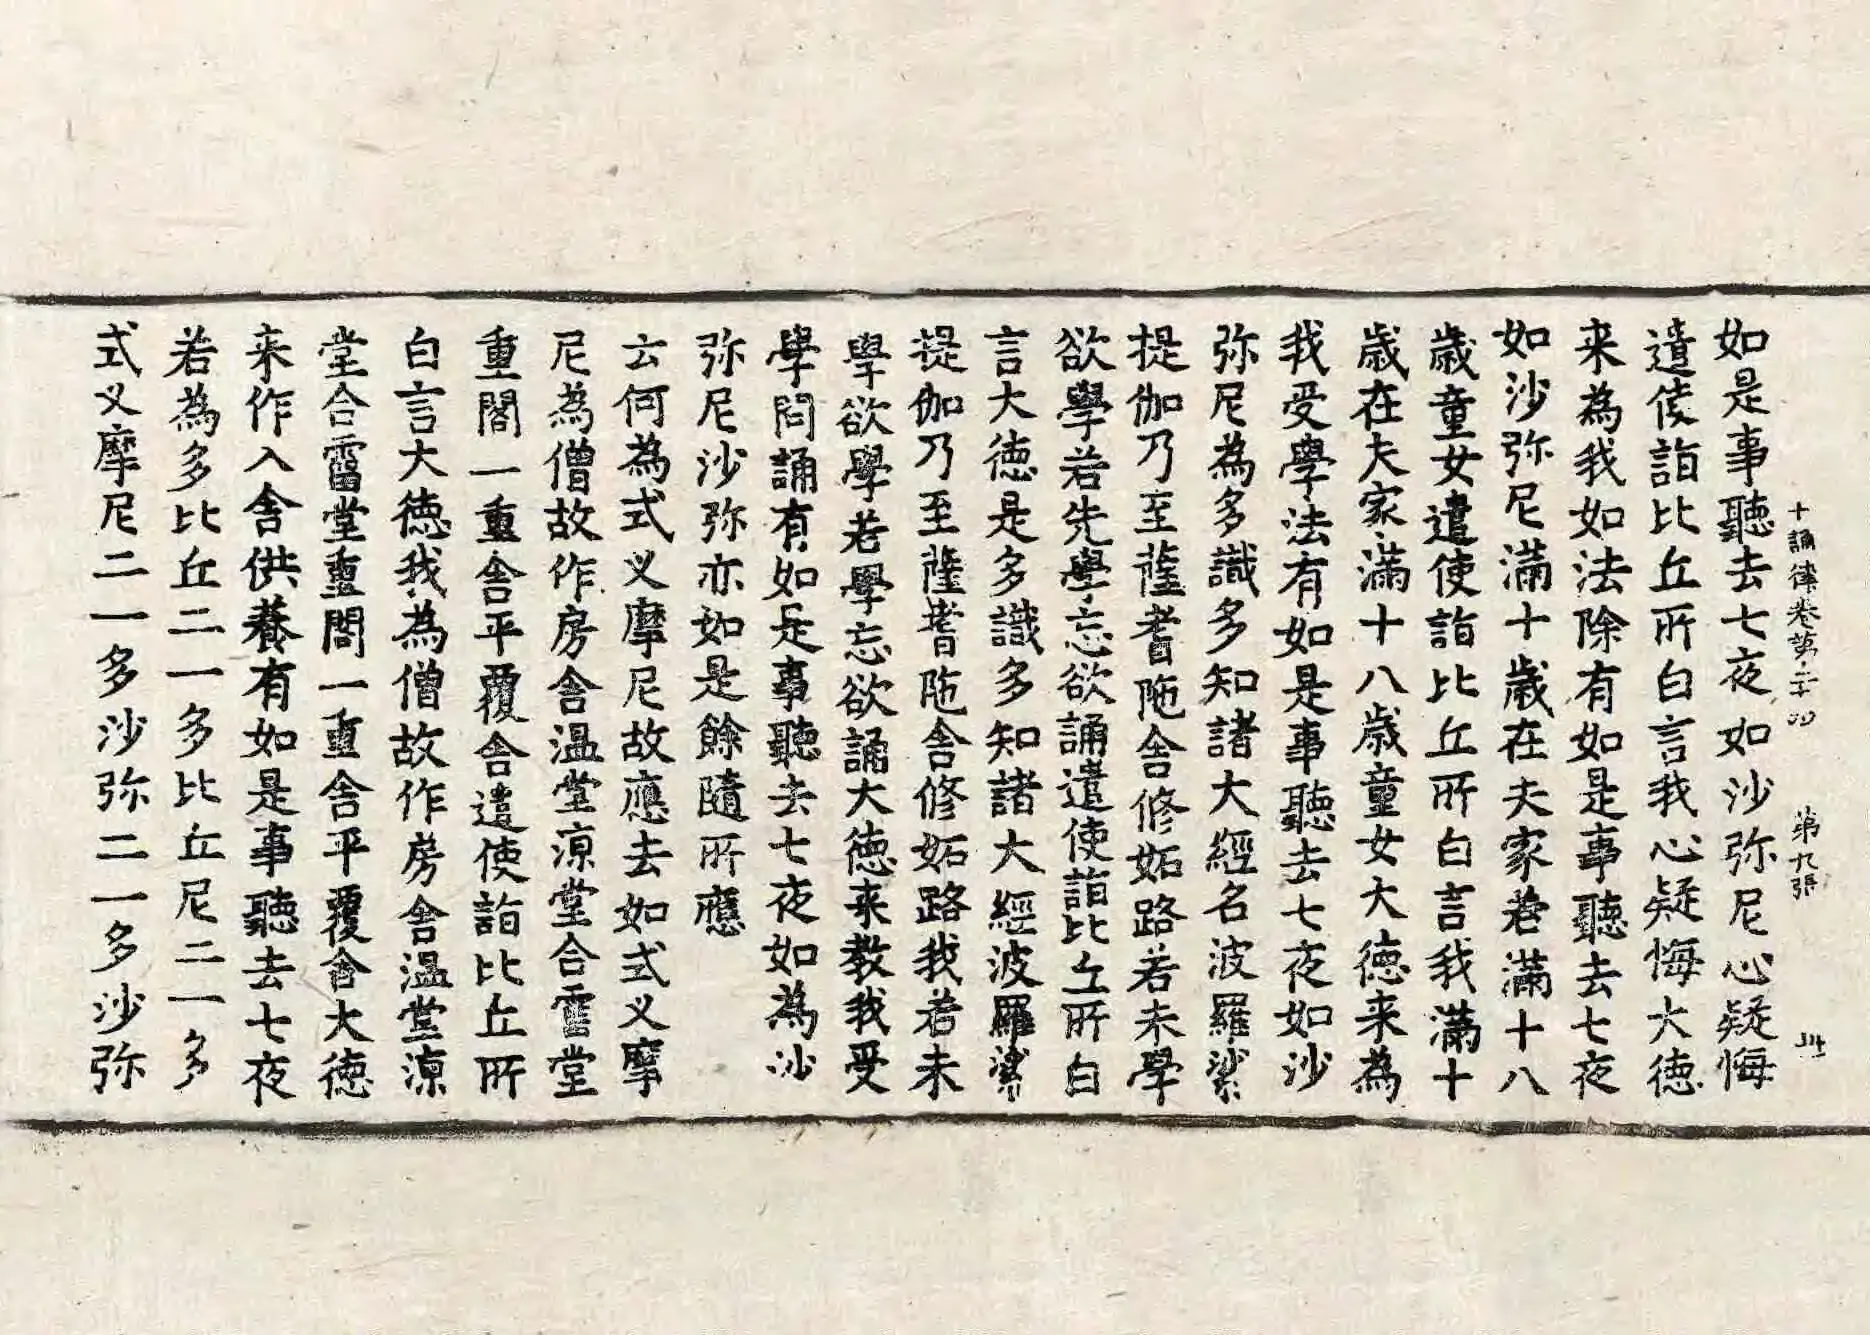 十誦律卷第二十四 第九張 川
如是事聽去七夜如沙弥尼心疑悔
遣使詣比丘所白言我心疑悔大徳
来為我如法除有如是事聽去七夜
如沙弥尼滿十歲在夫家若滿十八
歲童女遣使詣比丘所白言我滿十
歲在夫家滿十八歲童女大徳来為
我受學法有如是事聽去七夜如沙
弥尼為多識多知諸大經名波羅㲚
提伽乃至薩耆陁舍修妬路若未學
欲學若先學忘欲誦遣使詣比丘所白
言大徳是多識多知諸大經波羅㲚
提伽乃至薩耆陁舍修妬路我若未
學欲學若學忘欲誦大徳来教我受
學問誦有如是事聽去七夜如為沙
弥尼沙弥亦如是餘隨所應
云何為式叉摩尼故應去如式叉摩
尼為僧故作房舍温堂凉堂合霤堂
重閣一重舍平覆舍遣使詣比丘所
白言大徳我為僧故作房舍温堂凉
堂合霤堂重閣一重舍平覆舍大徳
来作入舍供養有如是事聽去七夜
若為多比丘二一多比丘尼二一多
式叉摩尼二一多沙弥二一多沙弥